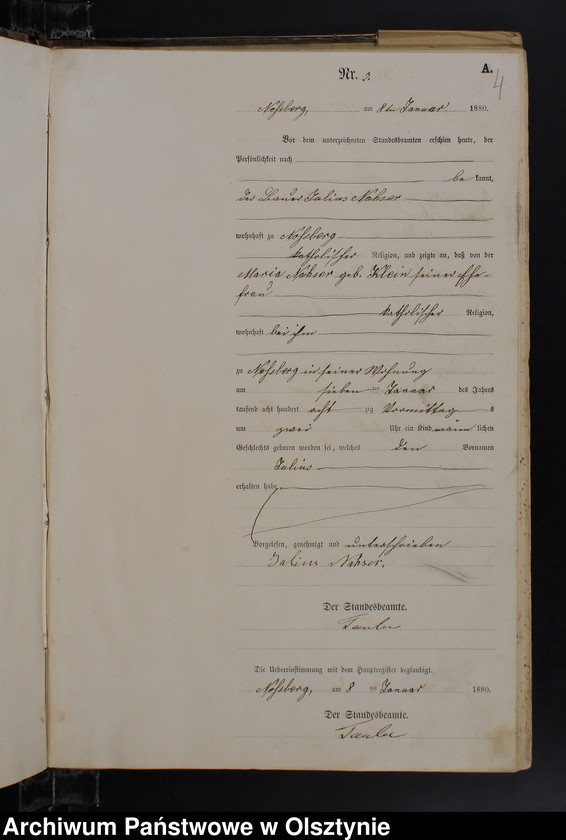 A.
4
Nr. 2.
Noßberg, am 8ten Januar 1880.
Vor dem unterzeichneten Standesbeamten erschien heute, der
Persönlichkeit nach
be kannt,
der Bauer Julius Nahser
wohnhaft zu Noßberg
katholischer Religion, und zeigte an, daß von der
Maria Nahser geb. Klein seiner Ehe-
frau
katholischer Religion,
wohnhaft bei ihm
zu Noßberg in seiner Wohnung
am sieben ten Januar des Jahres
tausend acht hundert acht zig Vormittag s
um zwei Uhr ein Kind männ lichen
Geschlechts geboren worden sei, welches den Vornamen
Julius
erhalten habe
Vorgelesen, genehmigt und unterschrieben
Julius Nahser.
Der Standesbeamte.
Die Uebereinstimmung mit dem Hauptregister beglaubigt.
Noßberg, am 8 ten Januar 1880.
Der Standesbeamte.
Archiwum Państwowe w Olsztynie